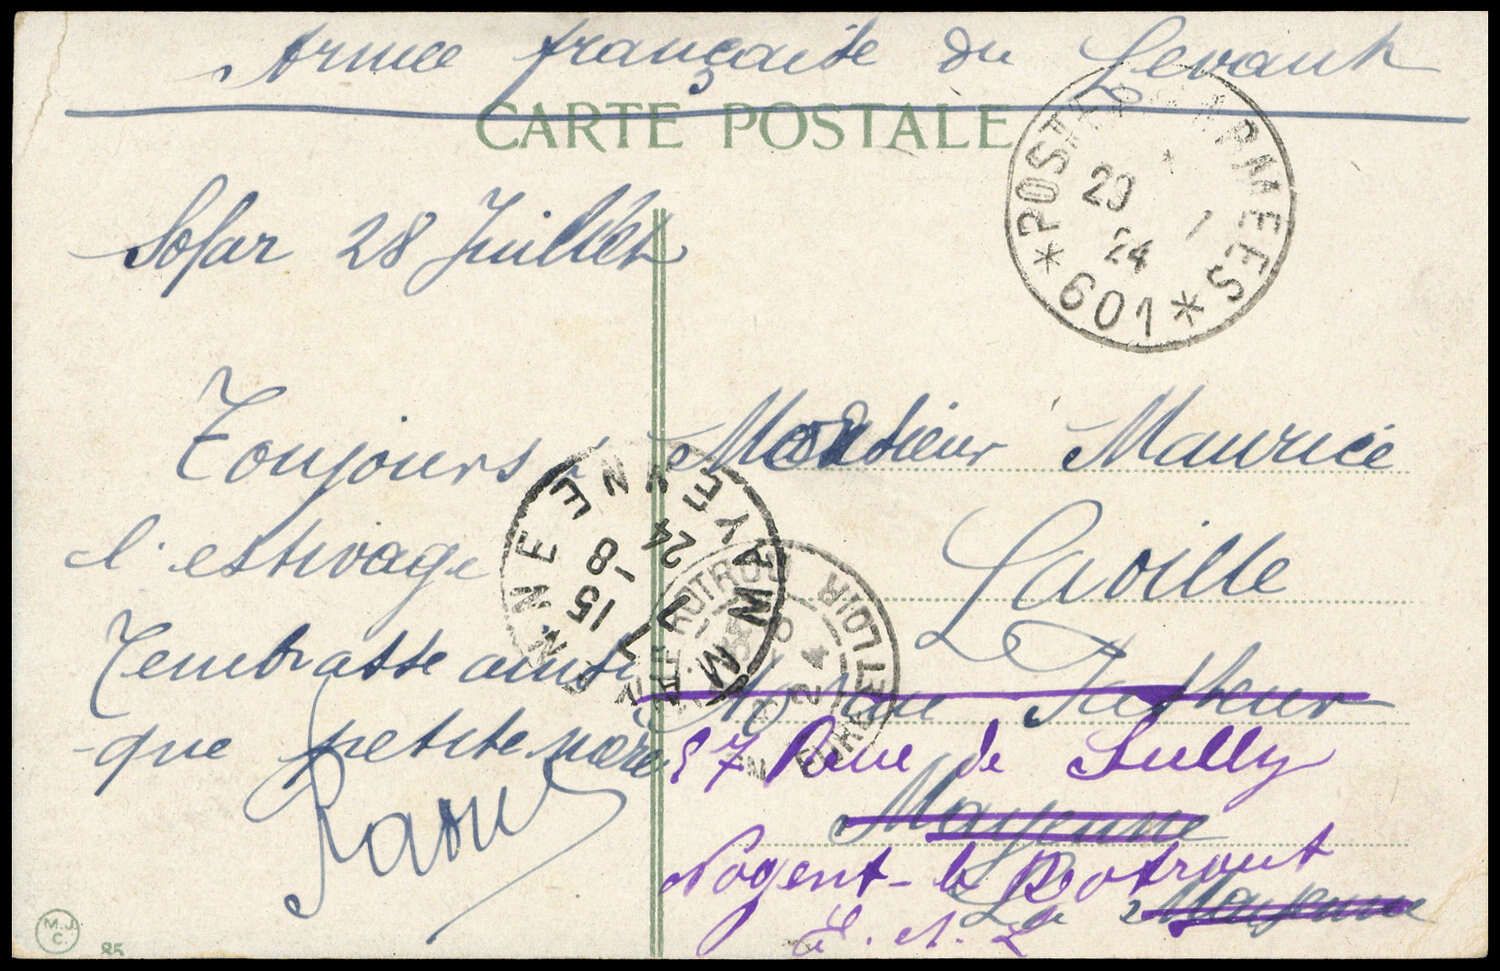 Armée française du Levant
CARTE POSTALE
POSTES AUX ARMEES
29 7
24
* 601 *
Sofar 28 Juillet
Toujours à
l'estivage
J'embrasse ainsi
que petite mère
Raoul
Monsieur Maurice
Laville
Pasteur
37 Rue de Sully
Mayenne
Nogent-le Rotrout
Mayenne
E. et L
MAYENNE
MAYENNE
15 -8
24
NOGENT-LE-ROTROU
EURE ET LOIR
M.J.
C.
85